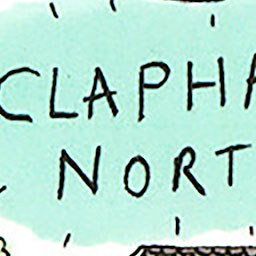 CLAPHA
NORT